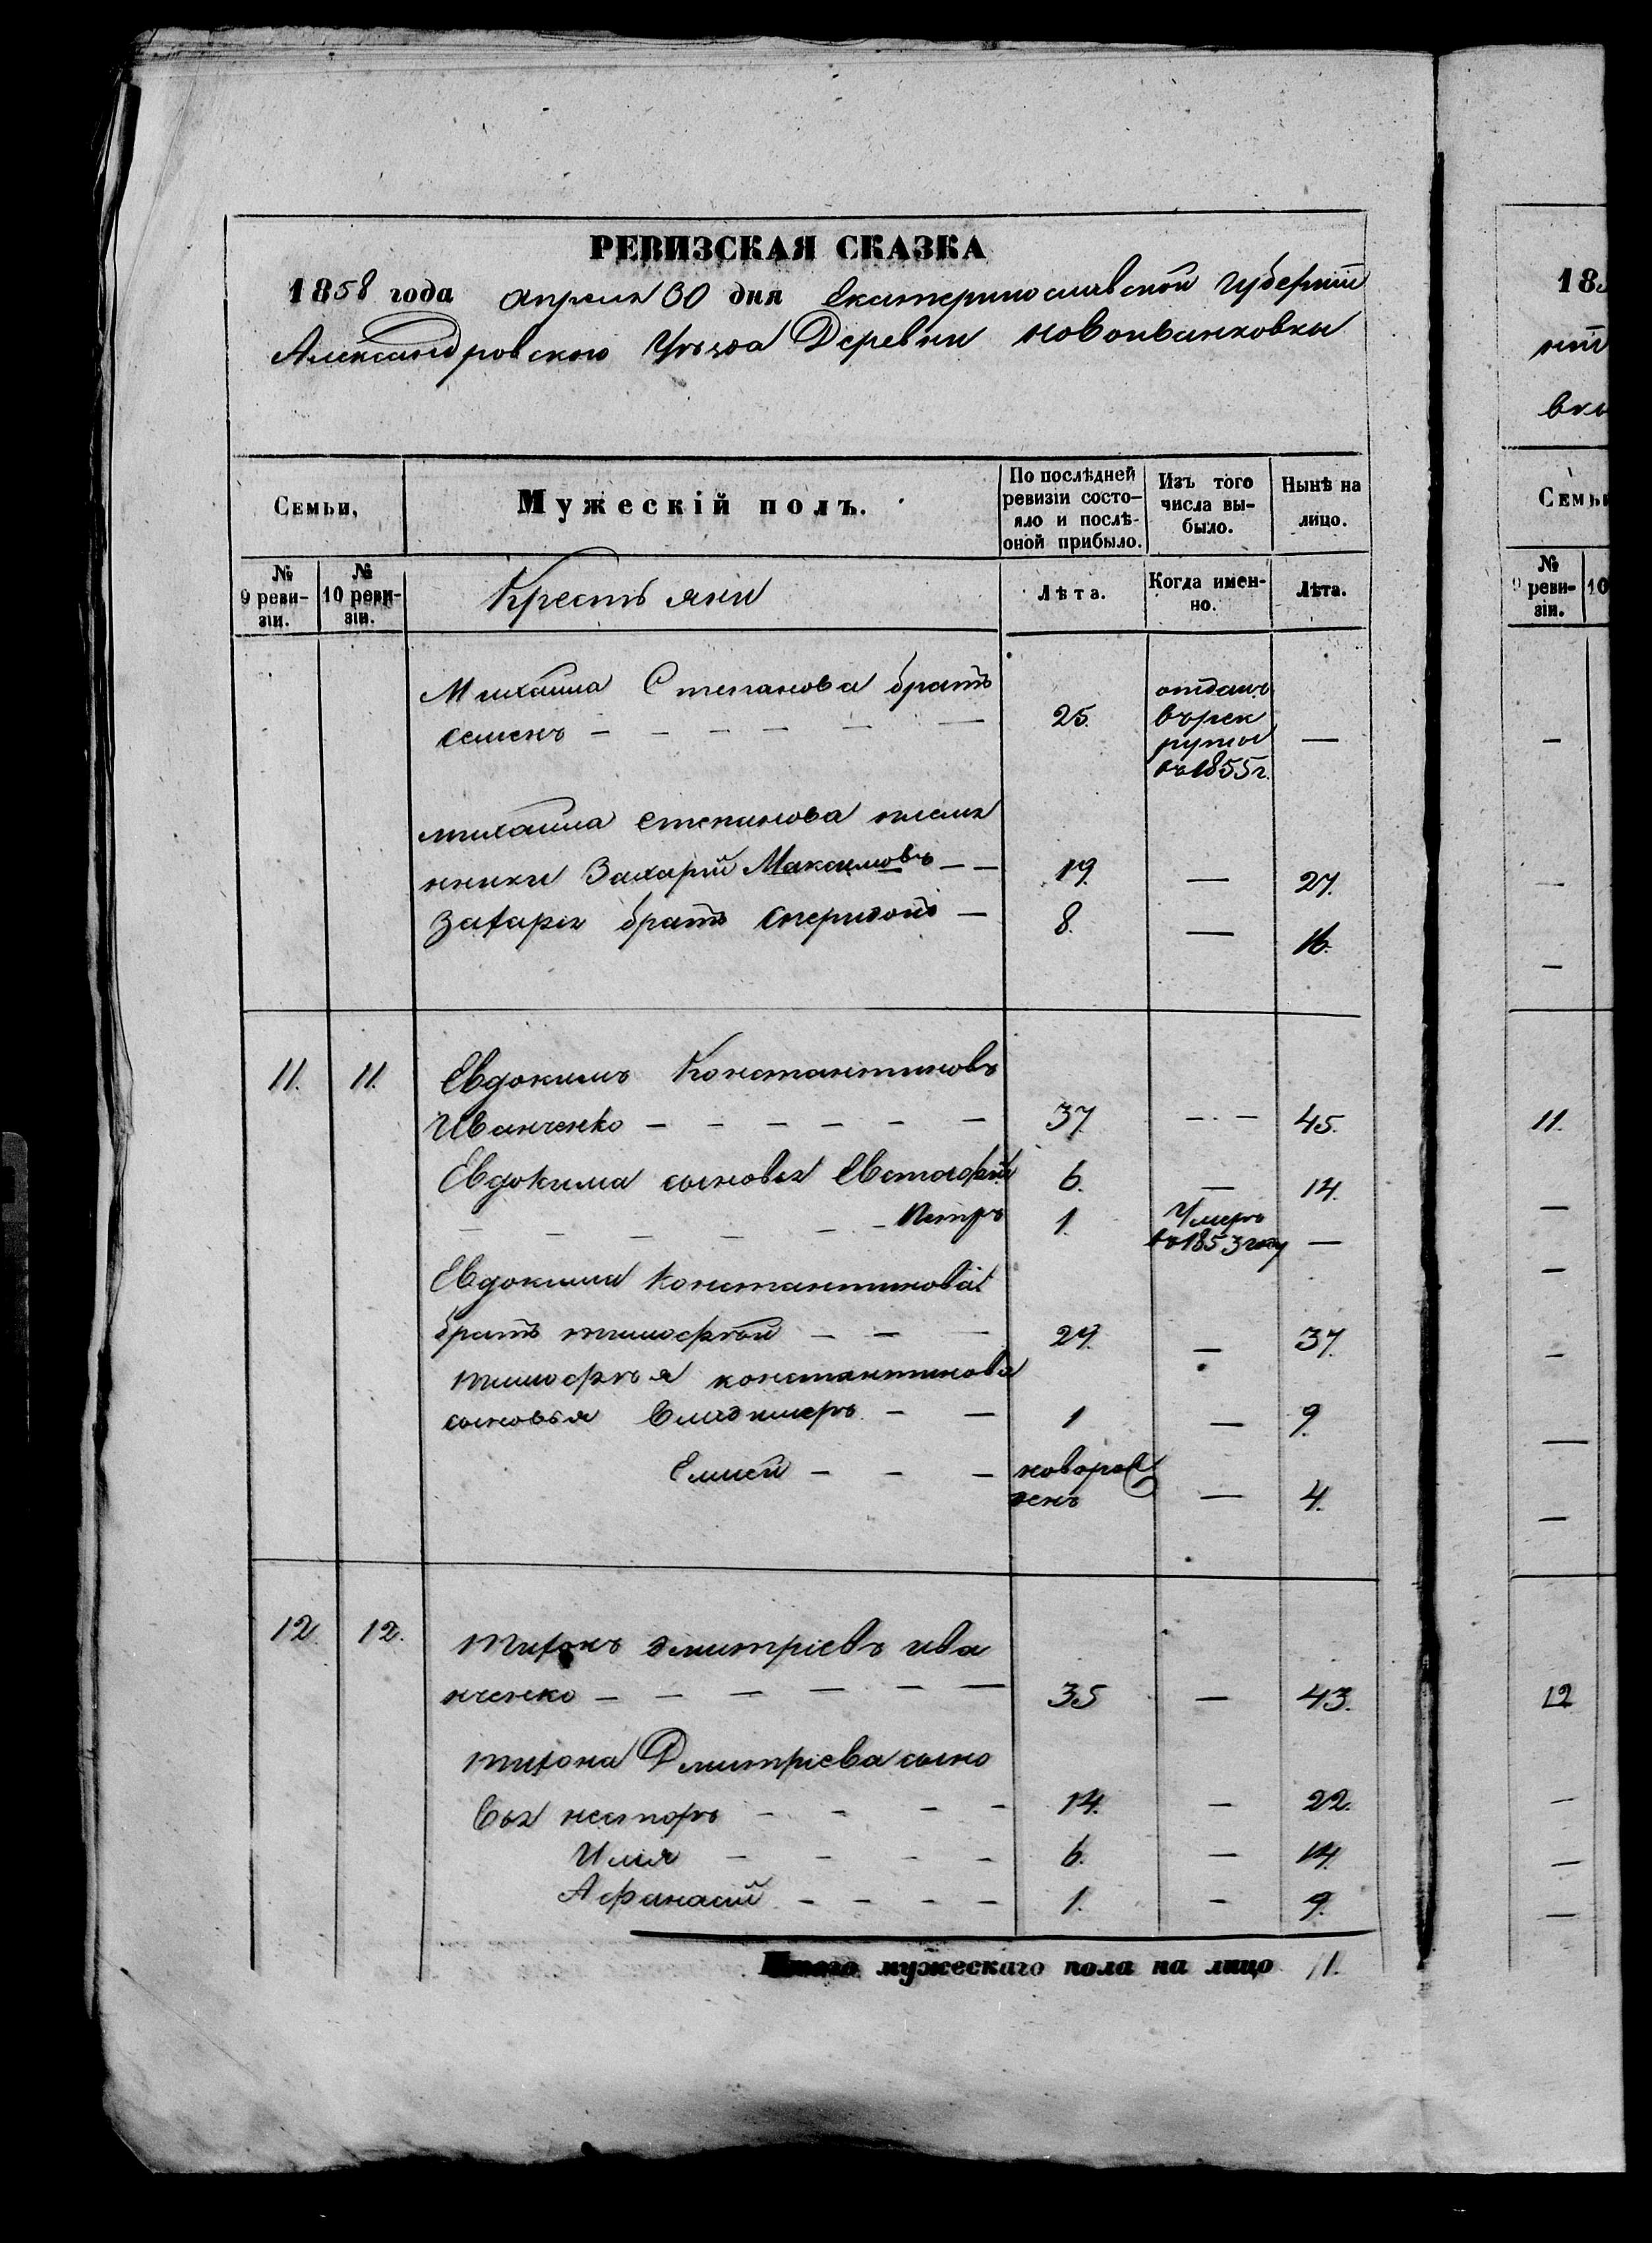 РЕВИЗСКАЯ СКАЗКА
1858 года апреля 30 дня Екатеринославской губернии
Александровского Уезда Деревни Новоивановки
Семьи,
Мужескій полъ.
По послѣдней ревизіи состо-
яло и послѣ-
оной прибыло.
Изъ того числа вы-
было.
Нынѣ на лицо.
№ 9 реви-
зіи.
№ 10 реви-
зіи.
Крестьяни
Лѣта.
Когда имен-
но.
Лѣта.
Михаила Степанова братъ
Семенъ — — — — — — 25. отданъ
въ рек
руты
въ 1855 г. —
михаила степанова племя
нники Захарій Максимовъ — — 19. — 27.
Захарія братъ Спиридонъ — 8. — 16.
11. 11. Евдокимъ Константиновъ
Иванченко — — — — — — 37. — — 45.
Евдокима сыновья Евстафій 6. — 14.
— — — — — — Петръ 1. Умеръ
въ 1853 году —
Евдокима Константинова
братъ тимофѣй — — — 29. — 37.
тимофѣя константинова
сыновья Владимеръ — — 1 — 9.
Елисей — — — новорож
денъ — 4.
12. 12. тихонъ дмитріевъ ива
нченко — — — — — — 35 — 43.
тихона Дмитріева сыно
вья несторъ — — — — 14. — 22.
Илія — — — — 6. — 14.
Афанасій — — — — 1. — 9.
Итого мужескаго пола на лицо 11.
18
Семьи
№
9 реви-
зіи.
10
11.
12